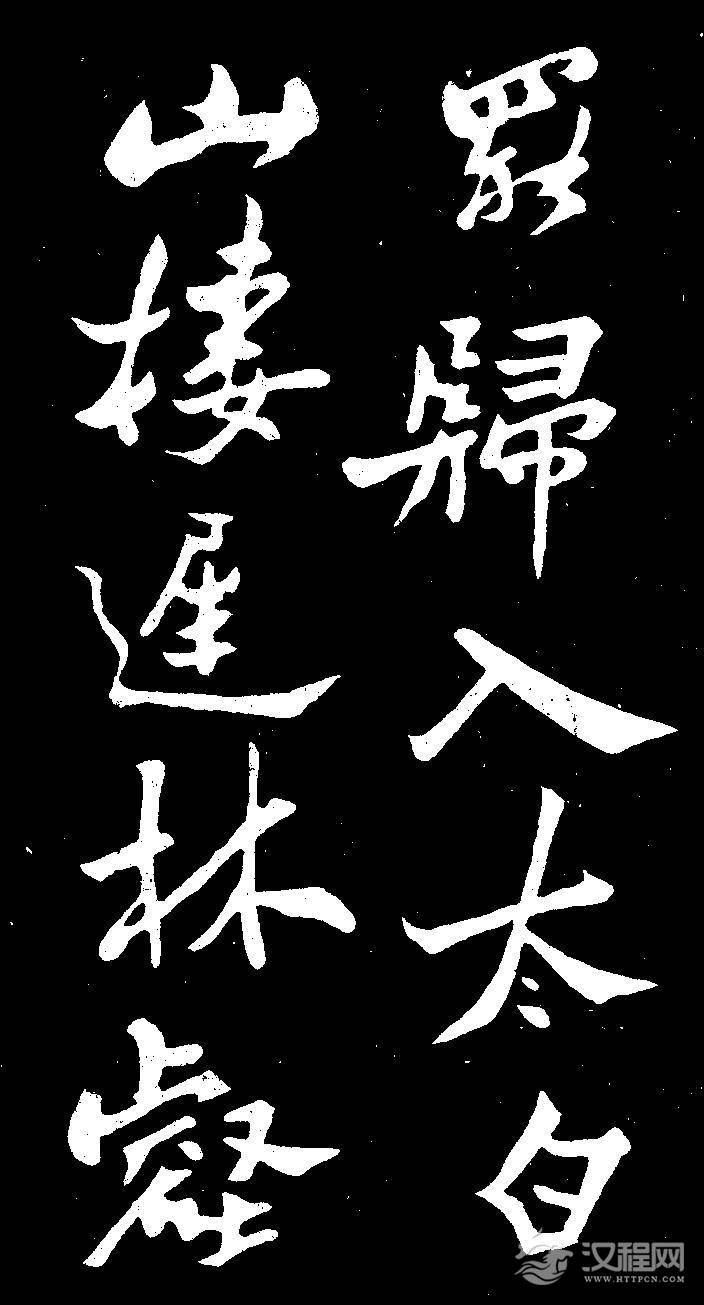 罷歸入太白
山棲遲林壑
汉程网
WWW.HTTPCN.COM